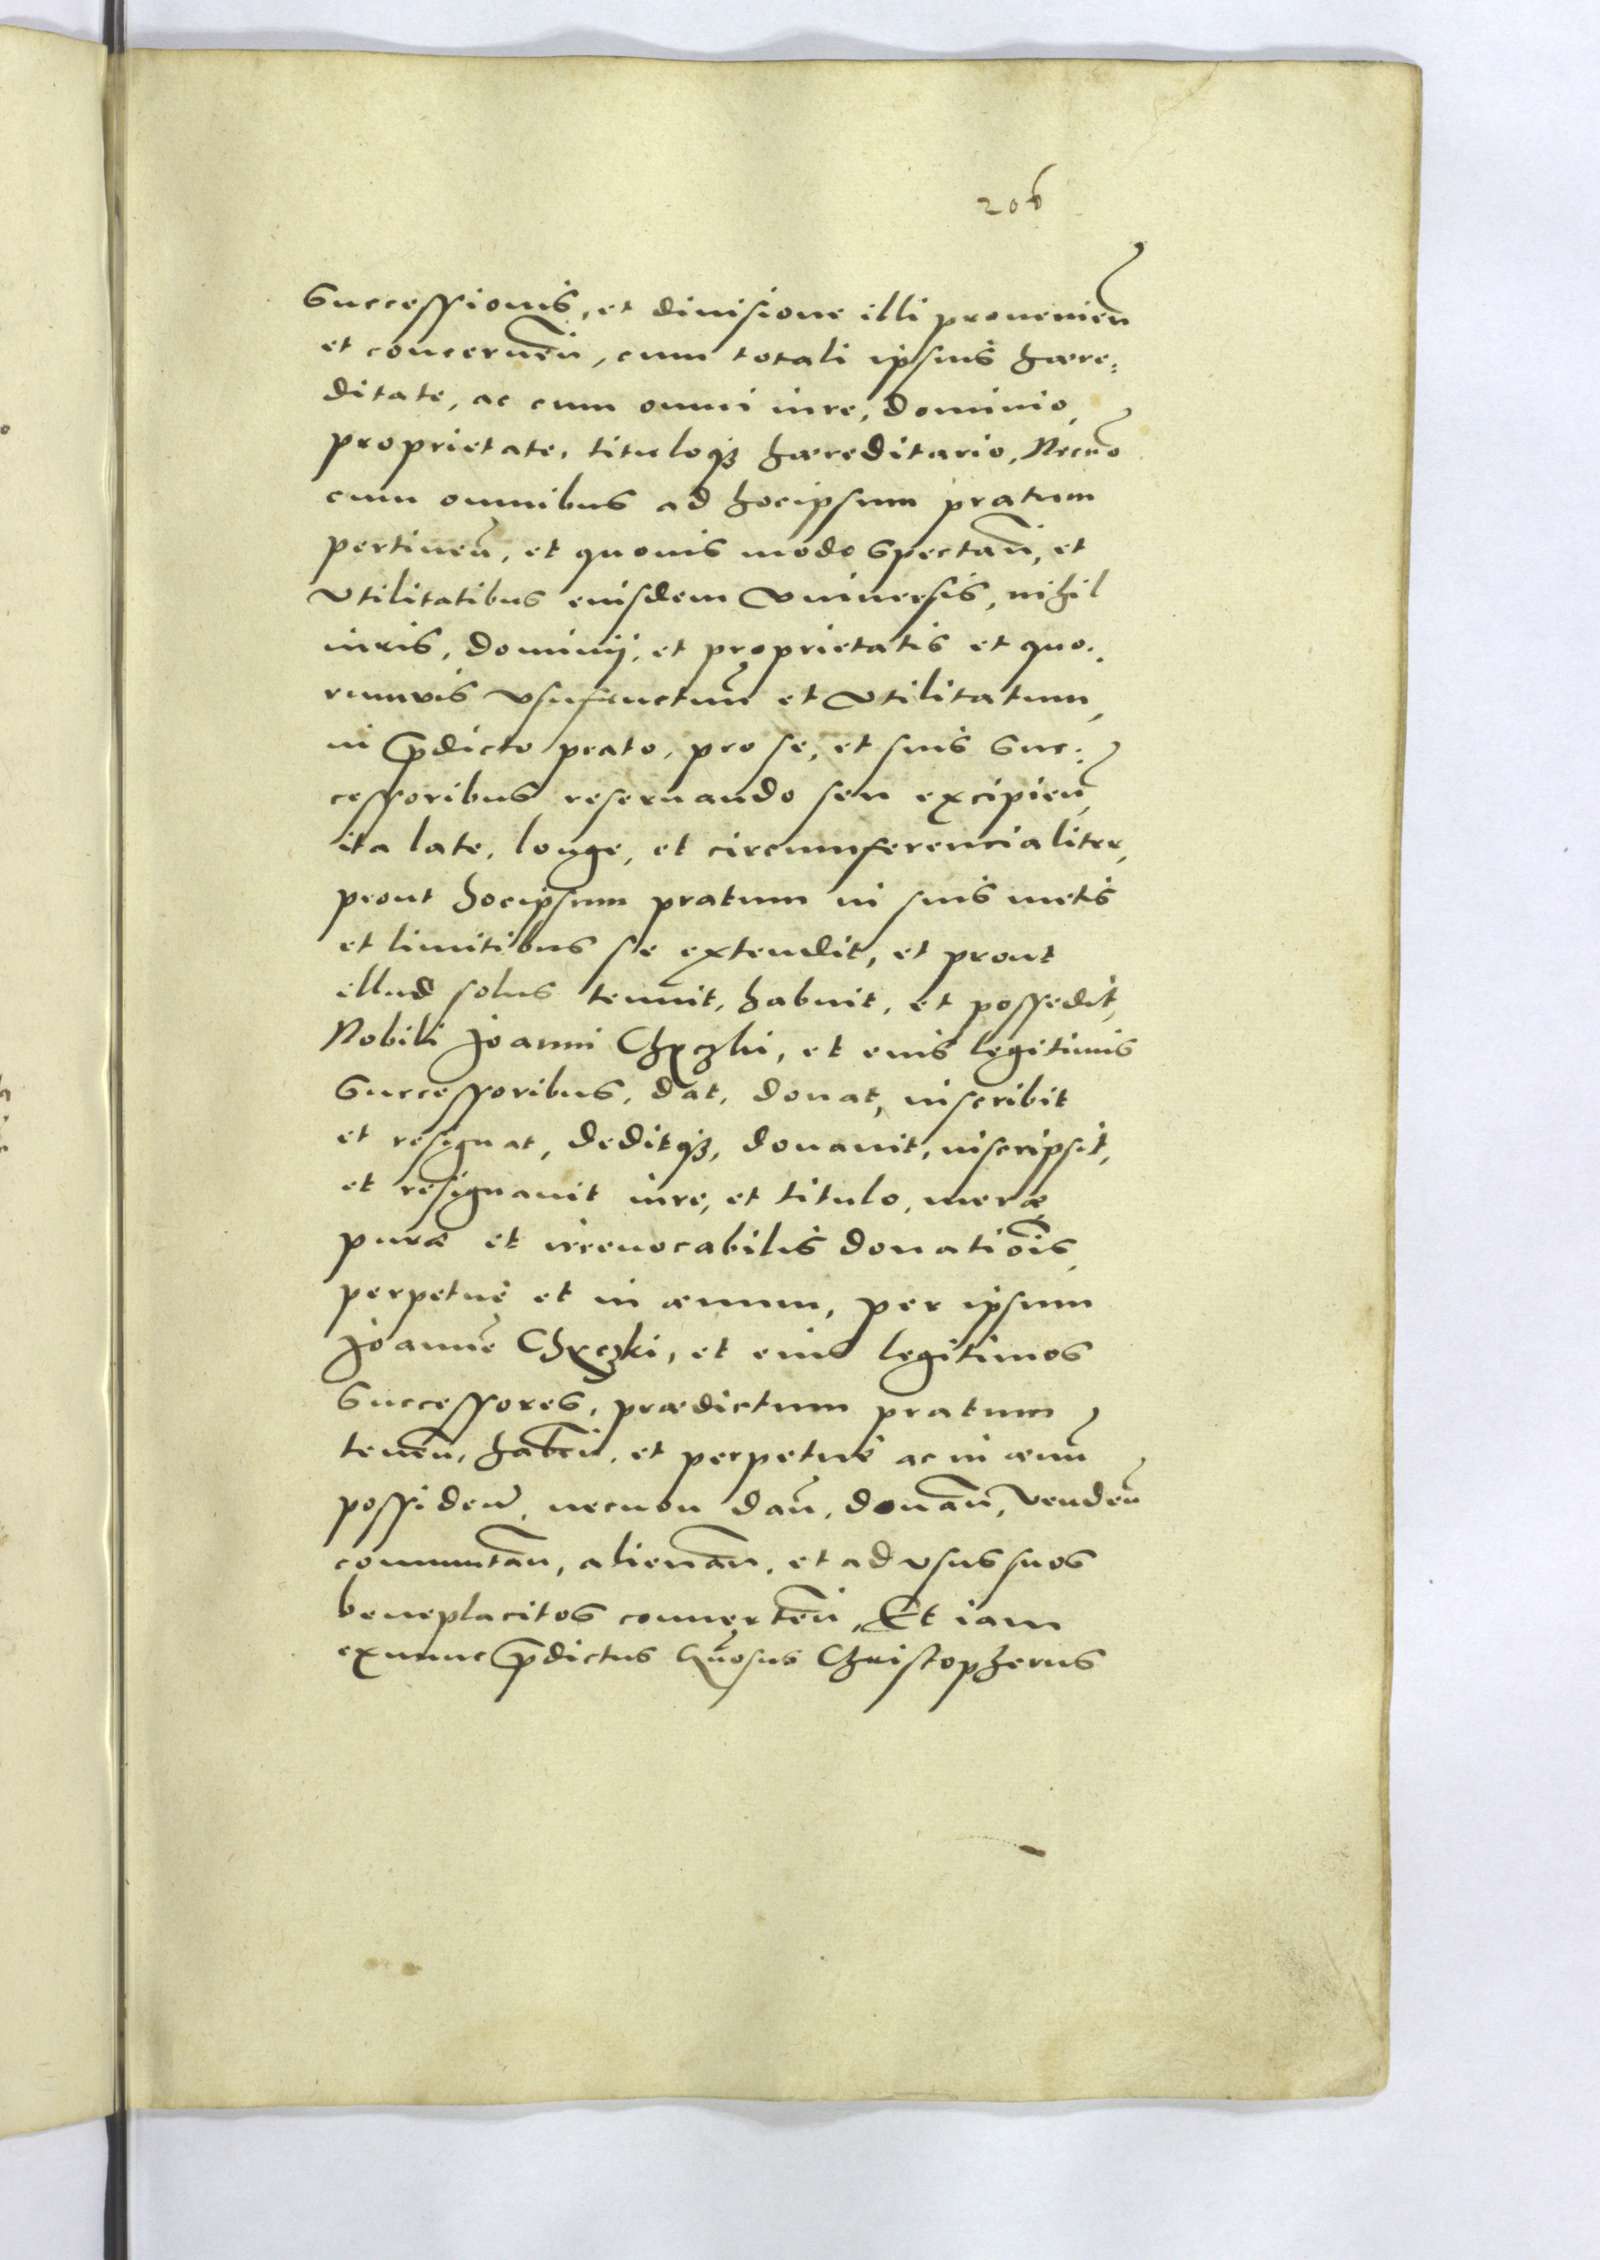 206
Successionis, et diuisione illi prouenien̄
et concernen̄, cum totali ipsius hære:
ditate, ac cum omni iure, dominio,
proprietate, tituloqȝ hæreditario, Necnō
cum omnibus ad hocipsum pratum
pertinen̄, et quouis modo spectan̄, et
vtilitatibus eiusdem vniuersis, nihil
iuris, dominij, et proprietatis et quo:
rumuis vsufructuū et vtilitatum,
in p̄dicto prato, pro se, et suis suc:
cessoribus reseruando seu excipien̄,
ita late, longe, et circumferencialiter,
prout hocipsum pratum in suis metis
et limitibus se extendit, et prout
illud solus tenuit, habuit, et possedit,
Nobili Joanni et eius legitimis
Successoribus, dat, donat, inscribit
et resignat, deditqȝ, donauit, inscripsit,
et resignauit iure, et titulo, meræ,
puræ et irreuocabilis donatiōis,
perpetuè et in æuum, per ipsum
Joannē et eius legitimos
Successores, prædictum pratum
tenen̄, haben̄, et perpetuè ac in æuū
possiden̄, necnon dan̄, donan̄, venden̄
commutan̄, alienan̄, et ad vsus suos
beneplacitos conuerten̄, Et iam
exnunc p̄dictus Gn̄osus Christopherus